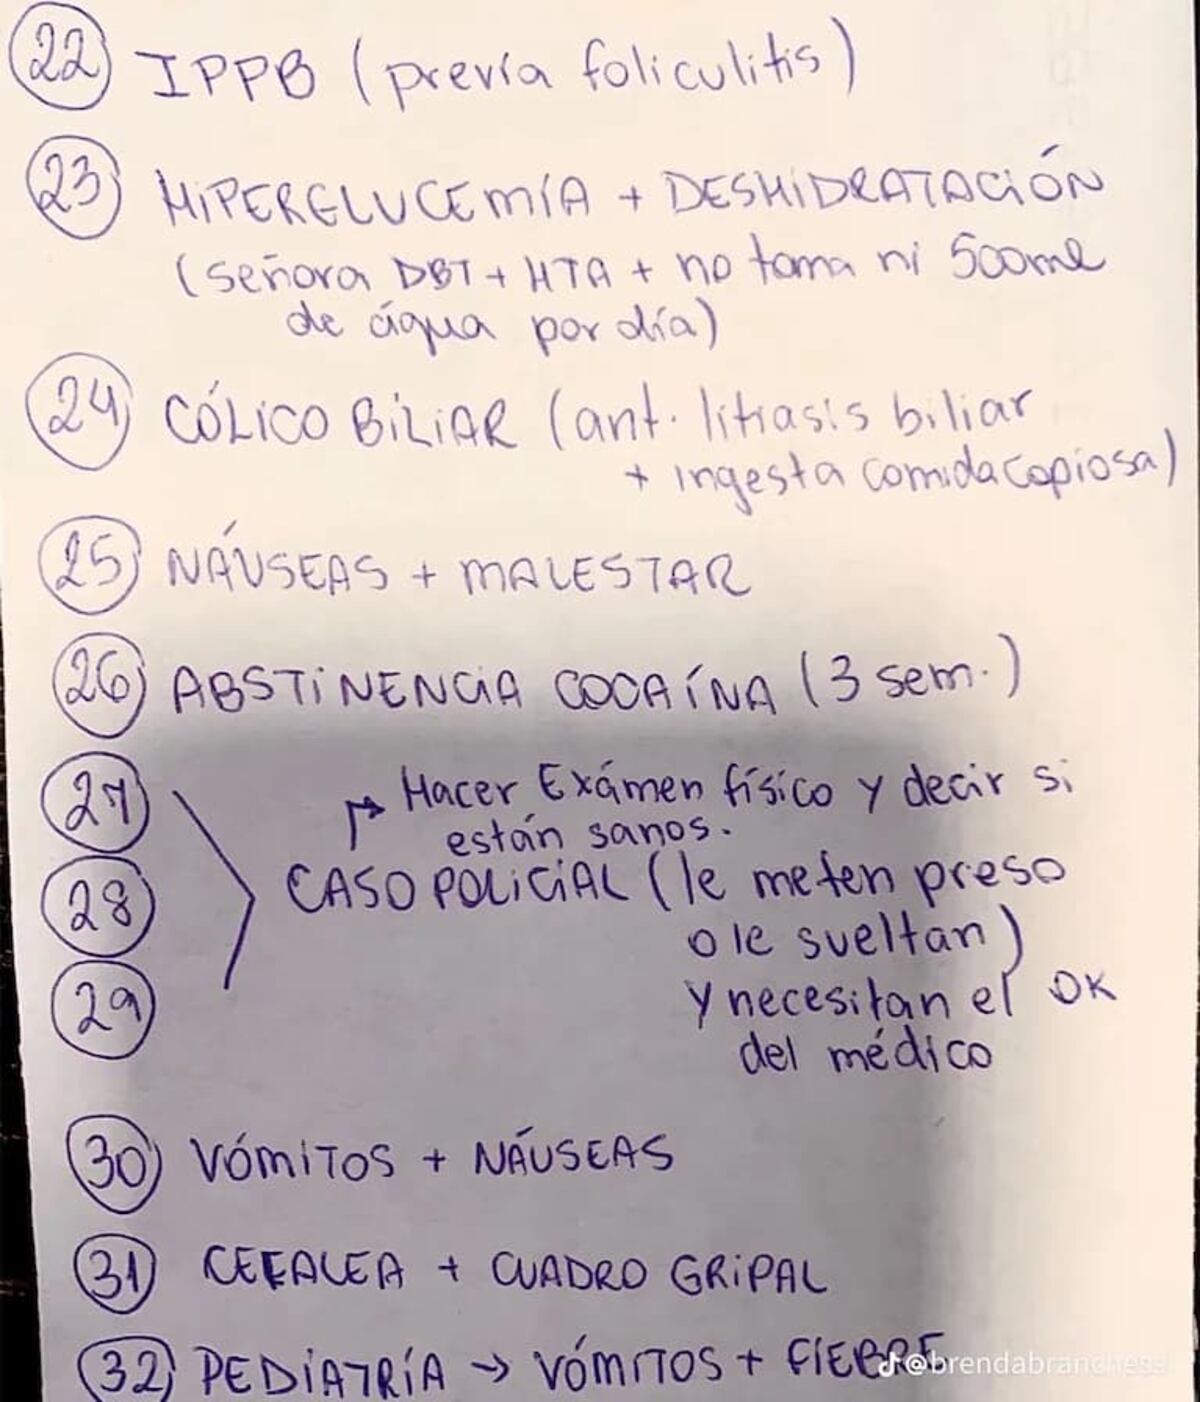 22 IPPB (previa foliculitis)
23 HIPERGLUCEMÍA + DESHIDRATACIÓN
(señora DBT + HTA + no toma ni 500ml
de água por día)
24 CÓLICO BILIAR (ant. litiasis biliar
+ ingesta comida copiosa)
25 NÁUSEAS + MALESTAR
26 ABSTINENCIA COCAÍNA (3 sem.)
27 → Hacer Exámen físico y decir si
están sanos.
28 CASO POLICIAL (le meten preso
o le sueltan)
29 y necesitan el OK
del médico
30 VÓMITOS + NÁUSEAS
31 CEFALEA + CUADRO GRIPAL
32 PEDIATRÍA → VÓMITOS + FIEBRE